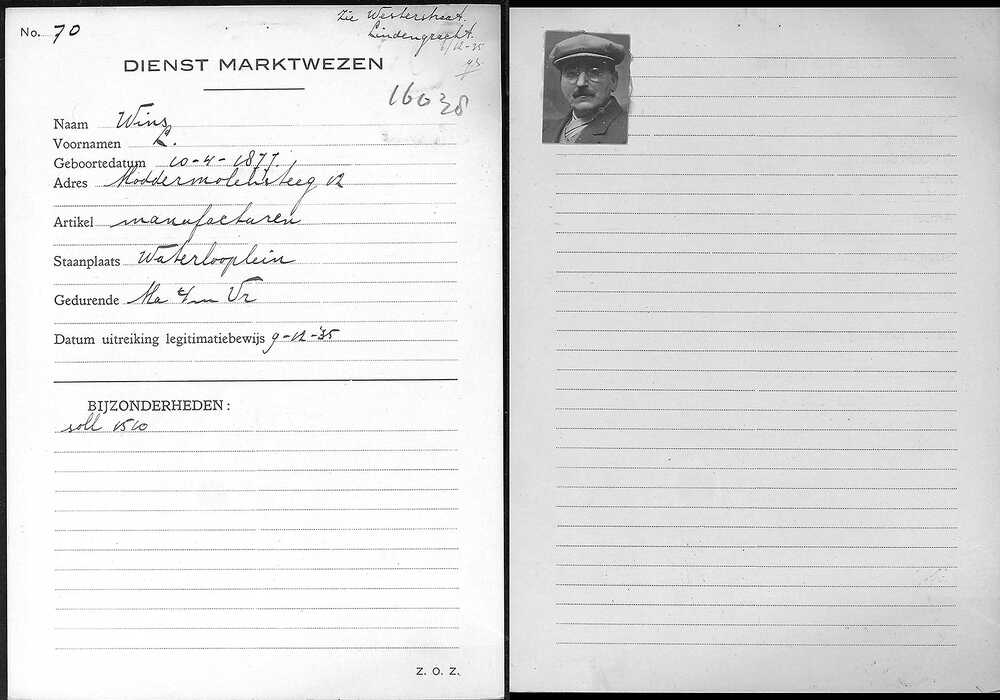 No. 70
Zie Westerstraat.
Lindengracht.
9/12-35
DIENST MARKTWEZEN
16038
Naam Wins
Voornamen L.
Geboortedatum 10-4-1877.
Adres Moddermolensteeg 12
Artikel manufacturen
Staanplaats Waterlooplein
Gedurende Ma t/m Vr
Datum uitreiking legitimatiebewijs 9-12-'35
BIJZONDERHEDEN:
soll 1510
Z. O. Z.